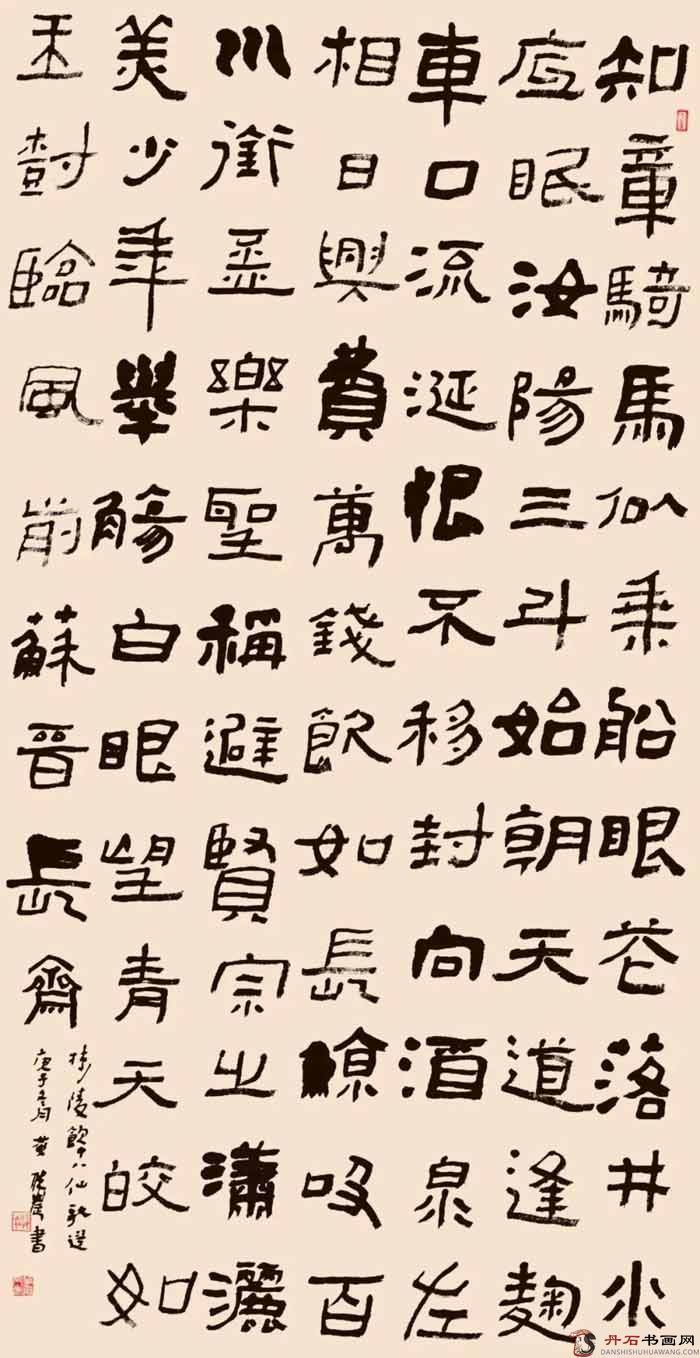 知章騎馬似乘船眼花落井水
底眠汝陽三斗始朝天道逢麴
車口流涎恨不移封向酒泉左
相日興費萬錢飲如長鯨吸百
川銜盃樂聖稱避賢宗之瀟灑
美少年舉觴白眼望青天皎如
玉樹臨風前蘇晉長齋
陵飲中八仙歌選
庚子 月黄 書
丹石书画网
DANSHISHUHUAWANG.COM